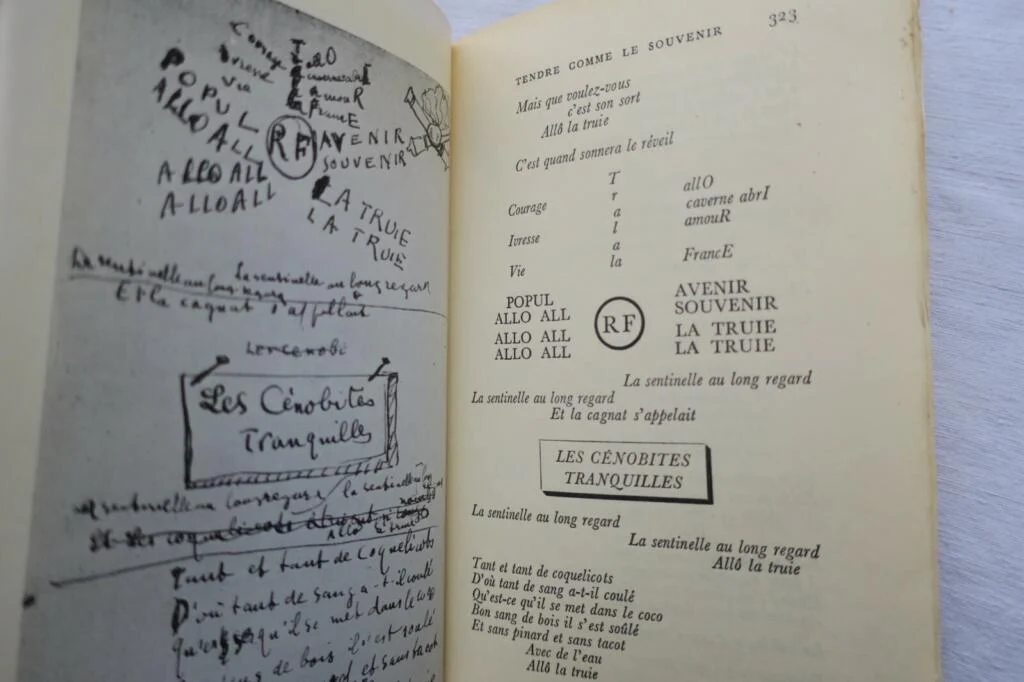 Courage T allO
Ivresse r caverne abrI
Vie a l amouR
a la FrancE
POPUL
ALLO ALL
RF
AVENIR
SOUVENIR
ALLO ALL
ALLO ALL
LA TRUIE
LA TRUIE
La sentinelle au long regard
La sentinelle au long regard
Et la cagnat s'appelait
Les Cénobites
Tranquilles
la sentinelle au long regard
la sentinelle au long
Et les coquelicots
Allo la truie
Tant et tant de coquelicots
D'où tant de sang a-t-il coulé
Qu'est-ce qu'il se met dans le coco
de bois il s'est soulé
et sans tacot
TENDRE COMME LE SOUVENIR 323
Mais que voulez-vous
c'est son sort
Allô la truie
C'est quand sonnera le réveil
T allO
Courage r caverne abrI
a amouR
Ivresse l
a FrancE
Vie la
POPUL
ALLO ALL
RF
AVENIR
SOUVENIR
ALLO ALL
ALLO ALL
LA TRUIE
LA TRUIE
La sentinelle au long regard
La sentinelle au long regard
Et la cagnat s'appelait
LES CÉNOBITES
TRANQUILLES
La sentinelle au long regard
La sentinelle au long regard
Allô la truie
Tant et tant de coquelicots
D'où tant de sang a-t-il coulé
Qu'est-ce qu'il se met dans le coco
Bon sang de bois il s'est soûlé
Et sans pinard et sans tacot
Avec de l'eau
Allô la truie